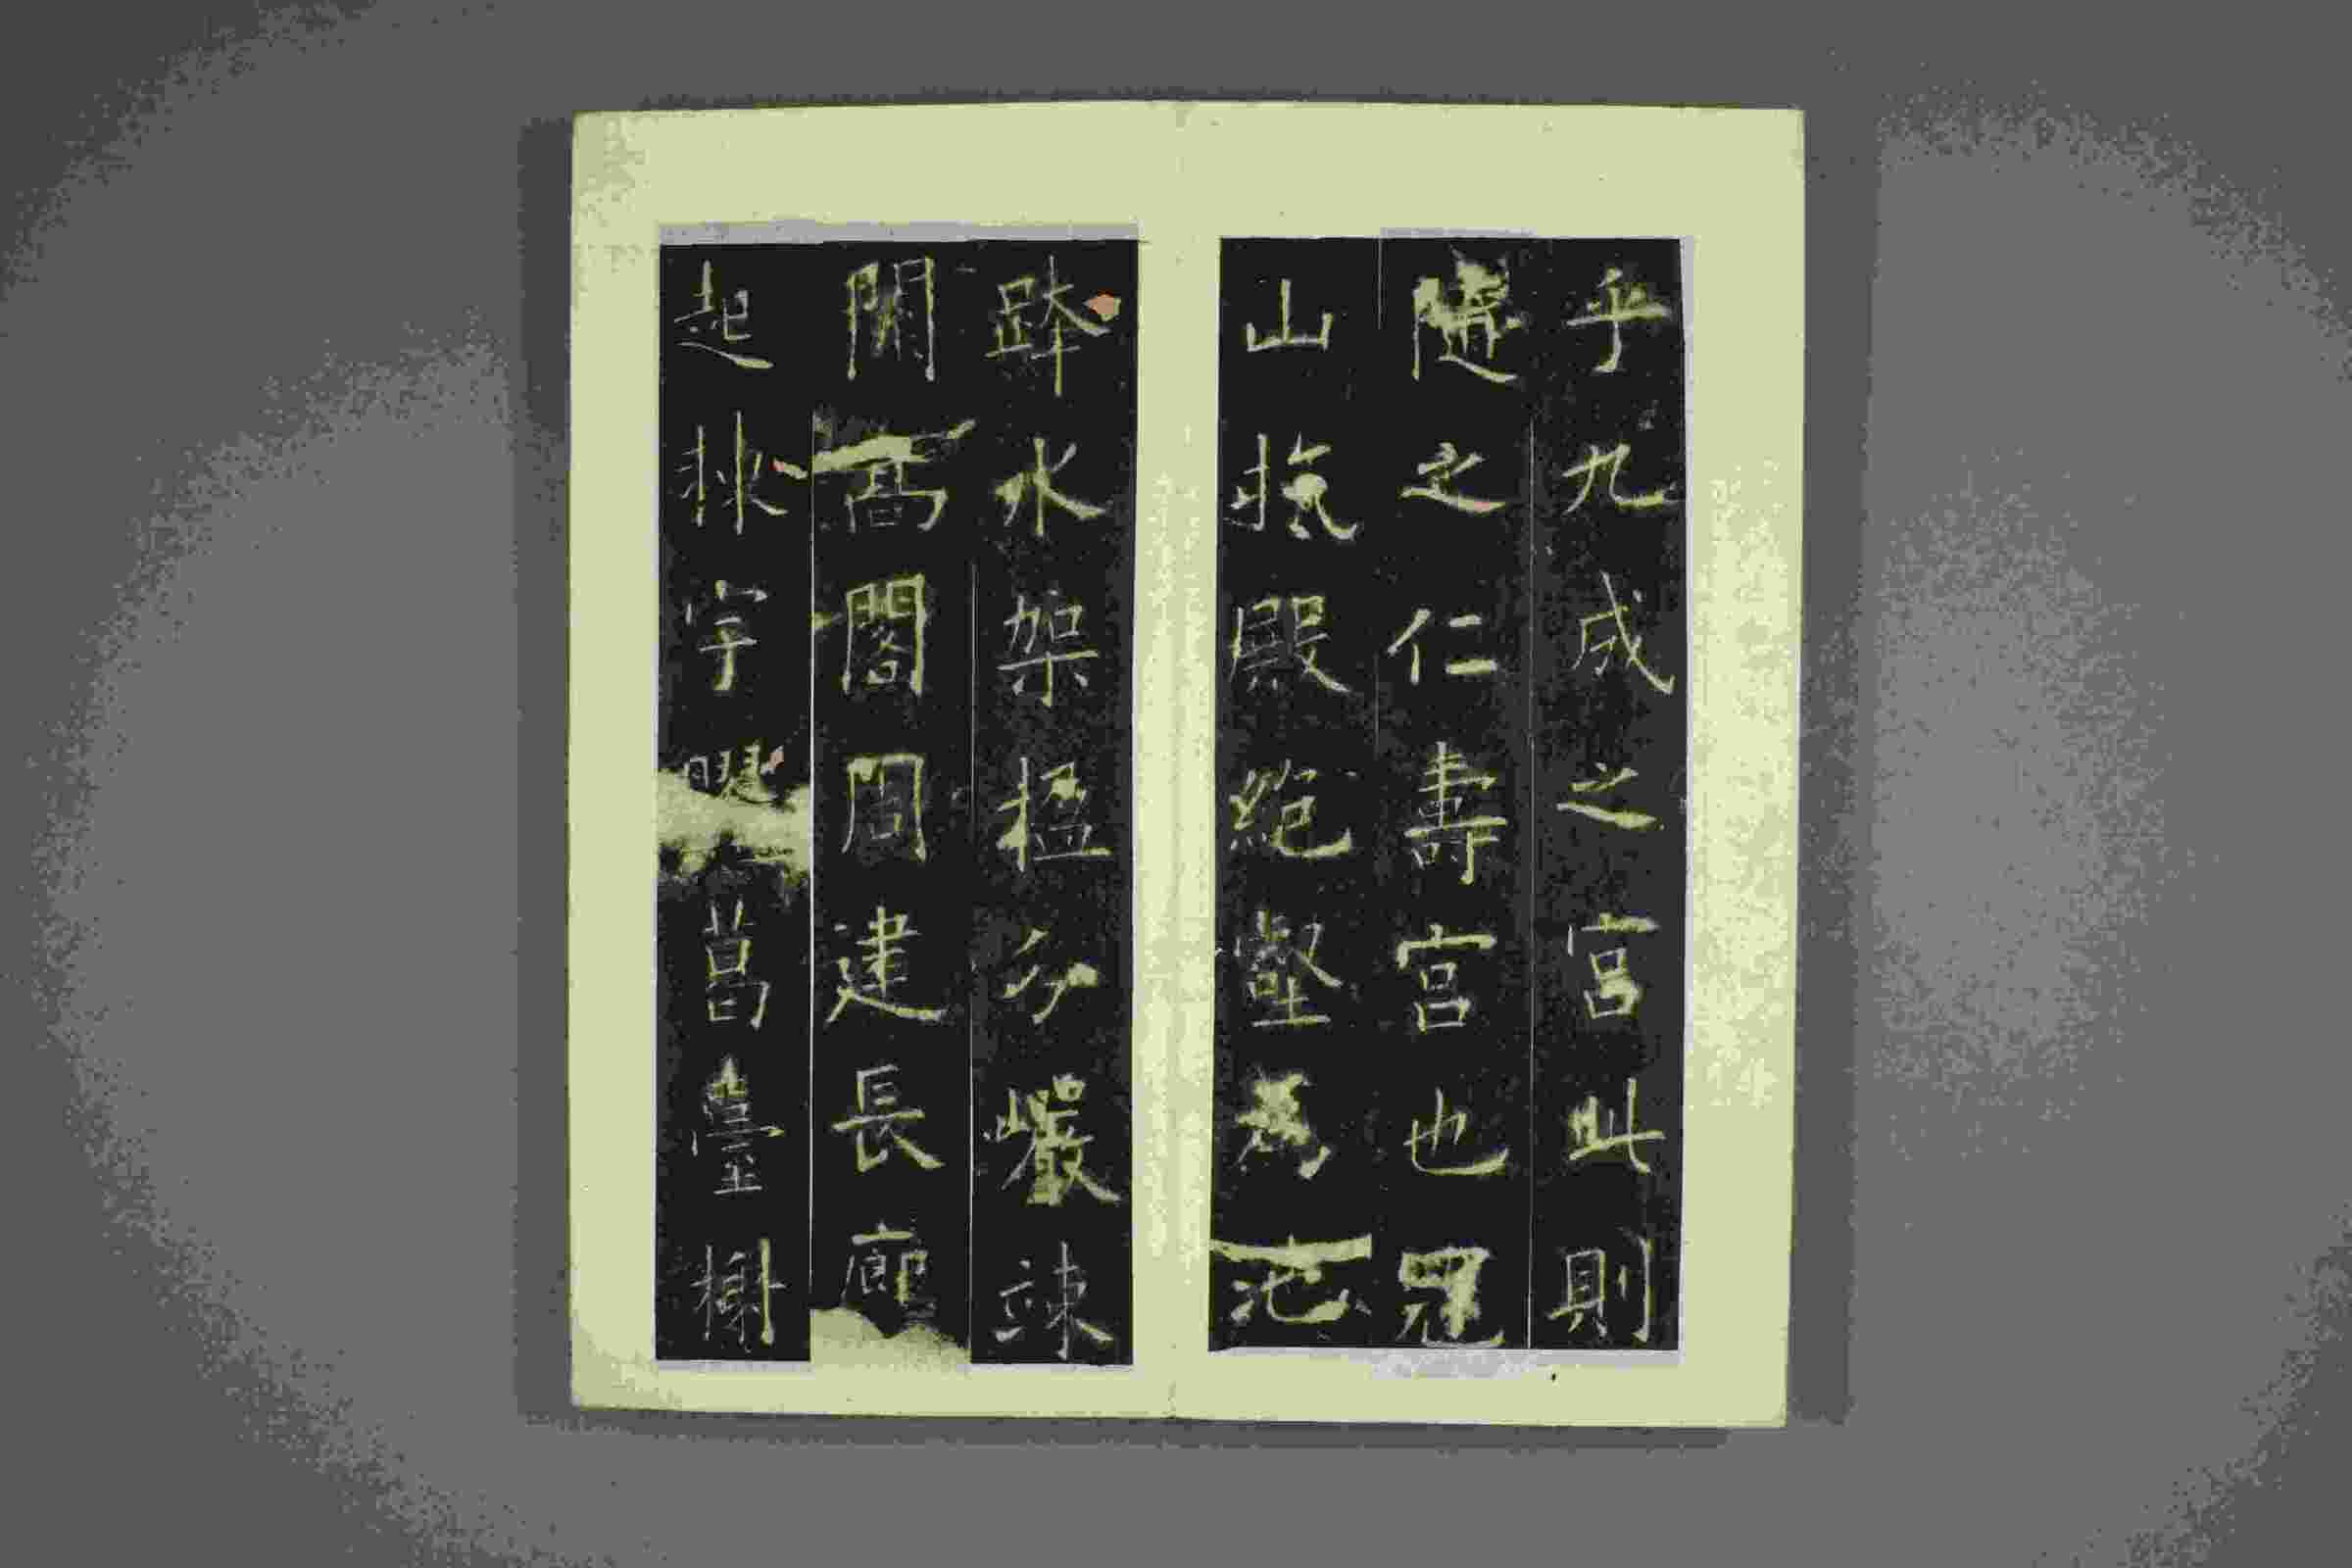 乎九成之宮此則
隨之仁壽宮也冠
山抗殿絕壑為池
跨水架楹分巖竦
闕高閣周建長廊
起棟宇膠葛臺榭